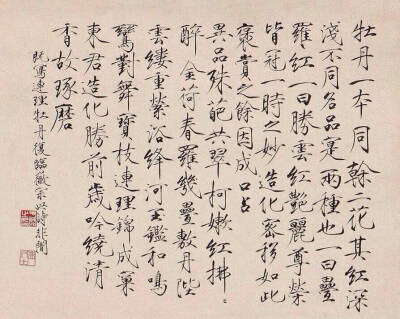 牡丹一本同幹二花其紅深
淺不同名品寔兩種也一曰疊
羅紅一曰勝雲紅艷麗尊榮
皆冠一時之妙造化密移如此
褒賞之餘因成口占
異品殊葩共翠柯嫩紅拂〻
醉金荷春羅幾疊敷丹陛
雲縷重縈浴絳河玉鑑和鳴
鸞對舞寶枝連理錦成窠
東君造化勝前歲吟繞清
香故琢磨
既寫連理牡丹復臨徽宗此詩非闇